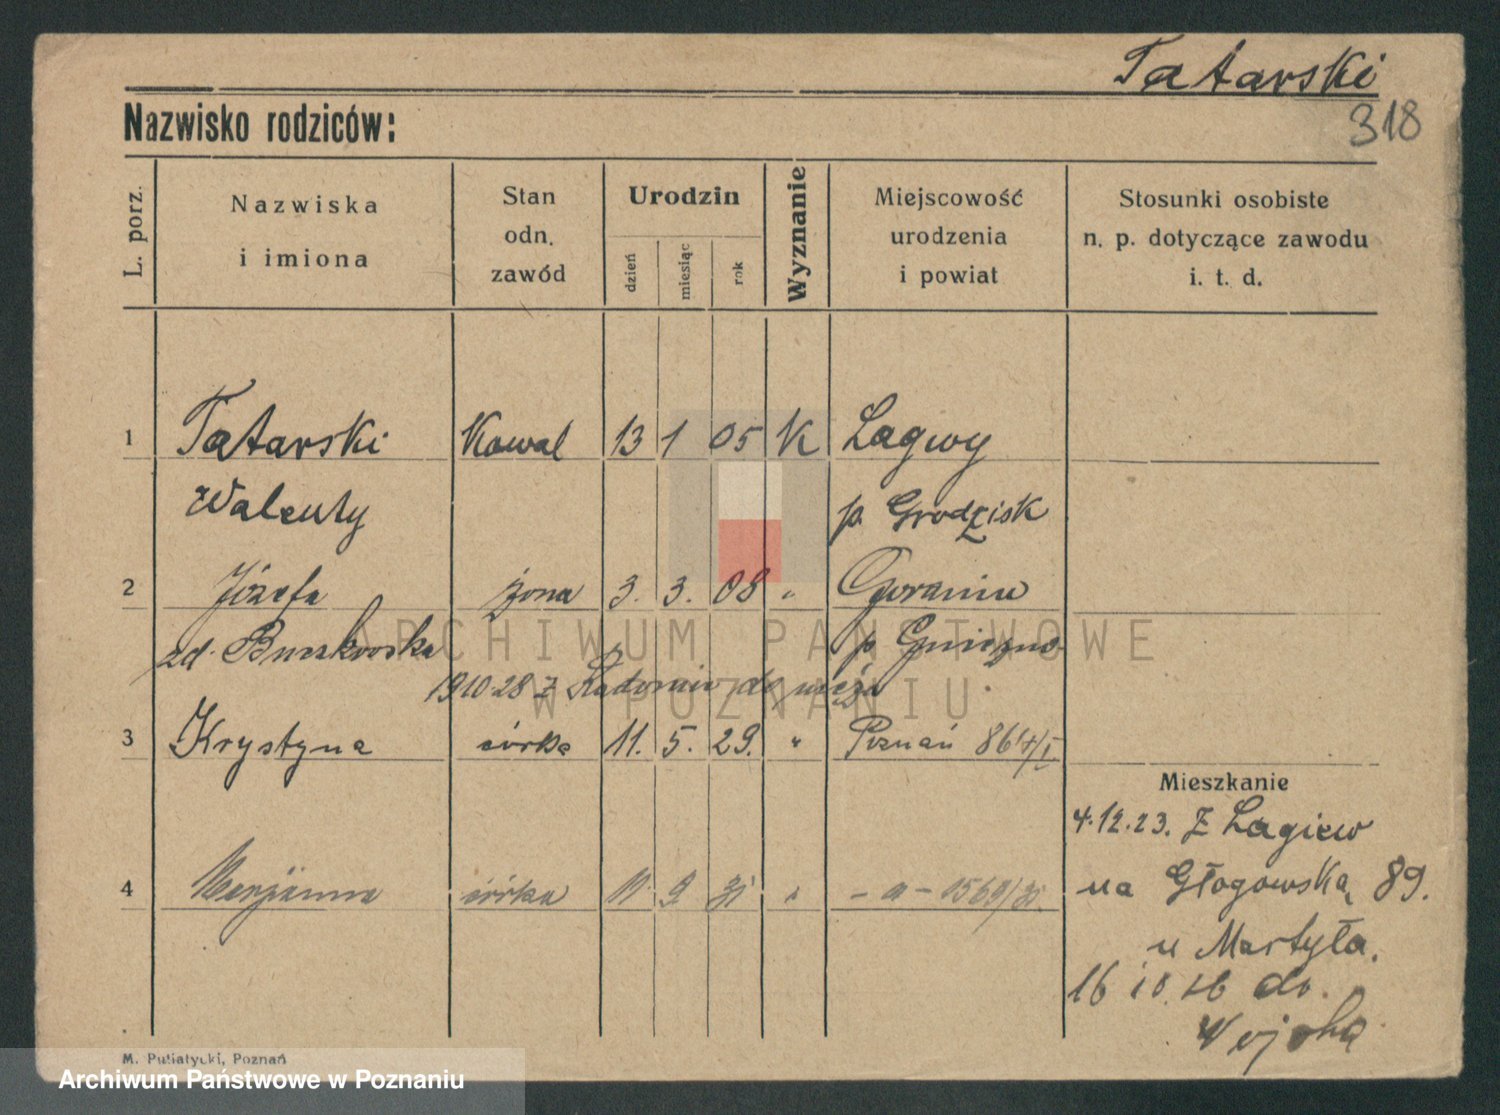 Tatarski
318
Nazwisko rodziców:
L. porz.
Nazwiska
i imiona
Stan
odn.
zawód
Urodzin
dzień
miesiąc
rok
Wyznanie
Miejscowość
urodzenia
i powiat
Stosunki osobiste
n. p. dotyczące zawodu
i. t. d.
1 Tatarski Kowal 13 1 05 K Łagwy
Walenty p. Grodzisk
2 Józefa żona 3. 3. 08 " Goranin
zd. Buczkowska p. Gniezno
z Radomia do męża
3 Krystyna córka 11. 5. 29. " Poznań
Mieszkanie
4.12.23. z Łagiew
4 Marjanna córka 11. 9 31 " - " - 1569/31
na Głogowską 89.
u Martyła.
do
Wojska
M. Putiatycki, Poznań
ARCHIWUM PAŃSTWOWE
W POZNANIU
Archiwum Państwowe w Poznaniu